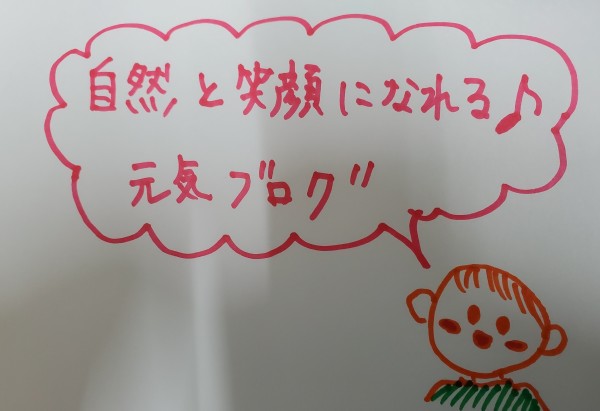 自然と笑顔になれる♪
元気ブログ